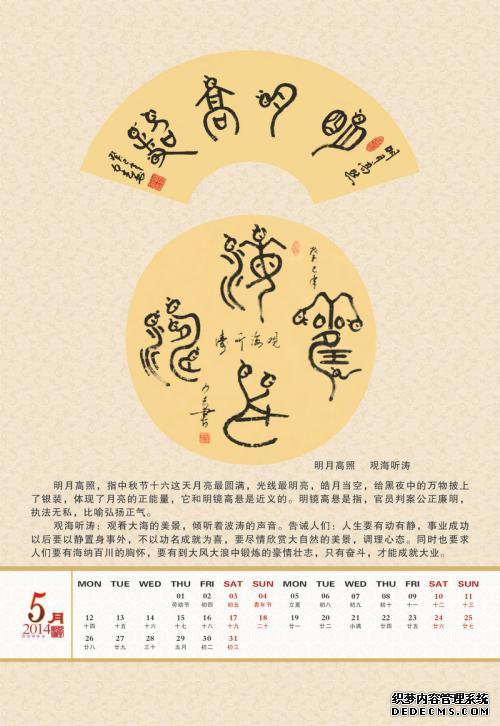 明月高照
明月高照
癸巳年
观海听涛
癸巳年
明月高照 观海听涛
明月高照，指中秋节十六这天月亮最圆满，光线最明亮，皓月当空，给黑夜中的万物披上
了银装，体现了月亮的正能量，它和明镜高悬是近义的。明镜高悬是指，官员判案公正廉明，
执法无私，比喻弘扬正气。
观海听涛：观看大海的美景，倾听着波涛的声音。告诫人们：人生要有动有静，事业成功
以后要以静置身事外，不以功名成就为喜，要尽情欣赏大自然的美景，调理心态。同时也要求
人们要有海纳百川的胸怀，要有到大风大浪中锻炼的豪情壮志，只有奋斗，才能成就大业。
5月
2014
MON TUE WED THU FRI SAT SUN MON TUE WED THU FRI SAT SUN
01 02 03 04 05 06 07 08 09 10 11
劳动节 初四 初五 青年节 立夏 初八 初九 初十 十一 十二 十三
12 13 14 15 16 17 18 19 20 21 22 23 24 25
十四 十五 十六 十七 十八 十九 二十 廿一 廿二 小满 廿四 廿五 廿六 廿七
26 27 28 29 30 31
廿八 廿九 三十 五月 初二 初三
织梦内容管理系统
DEDECMS.COM